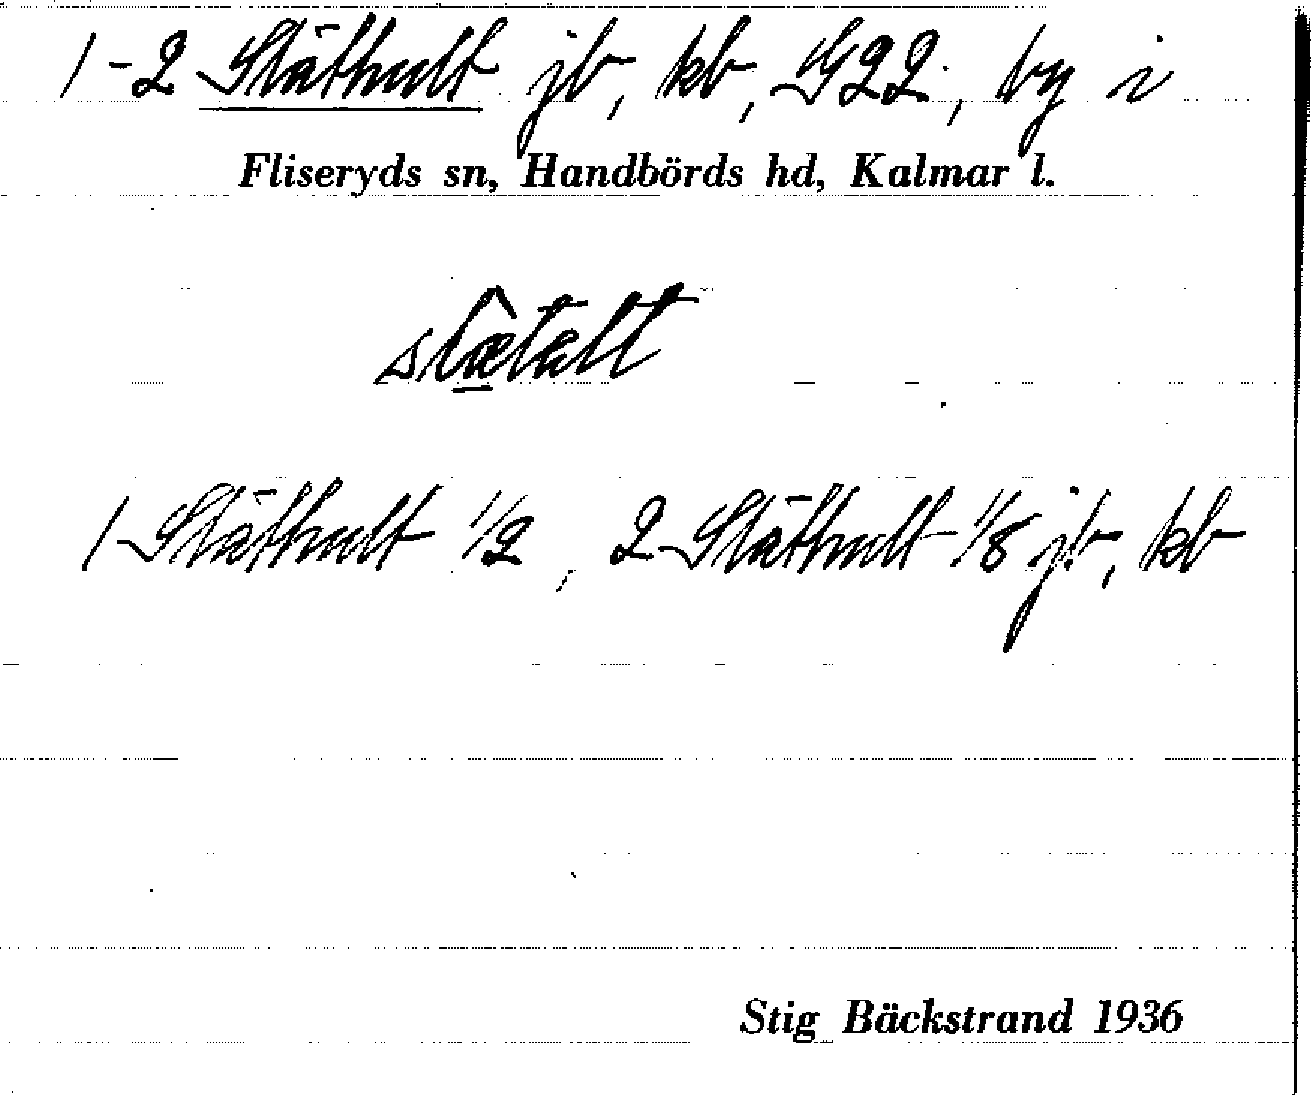 1-2 Stäthult jb, kb, G22, by i
Fliseryds sn, Handbörds hd, Kalmar l.
1 Stäthult 1/2, 2 Stäthult 1/8 jb, kb
Stig Bäckstrand 1936